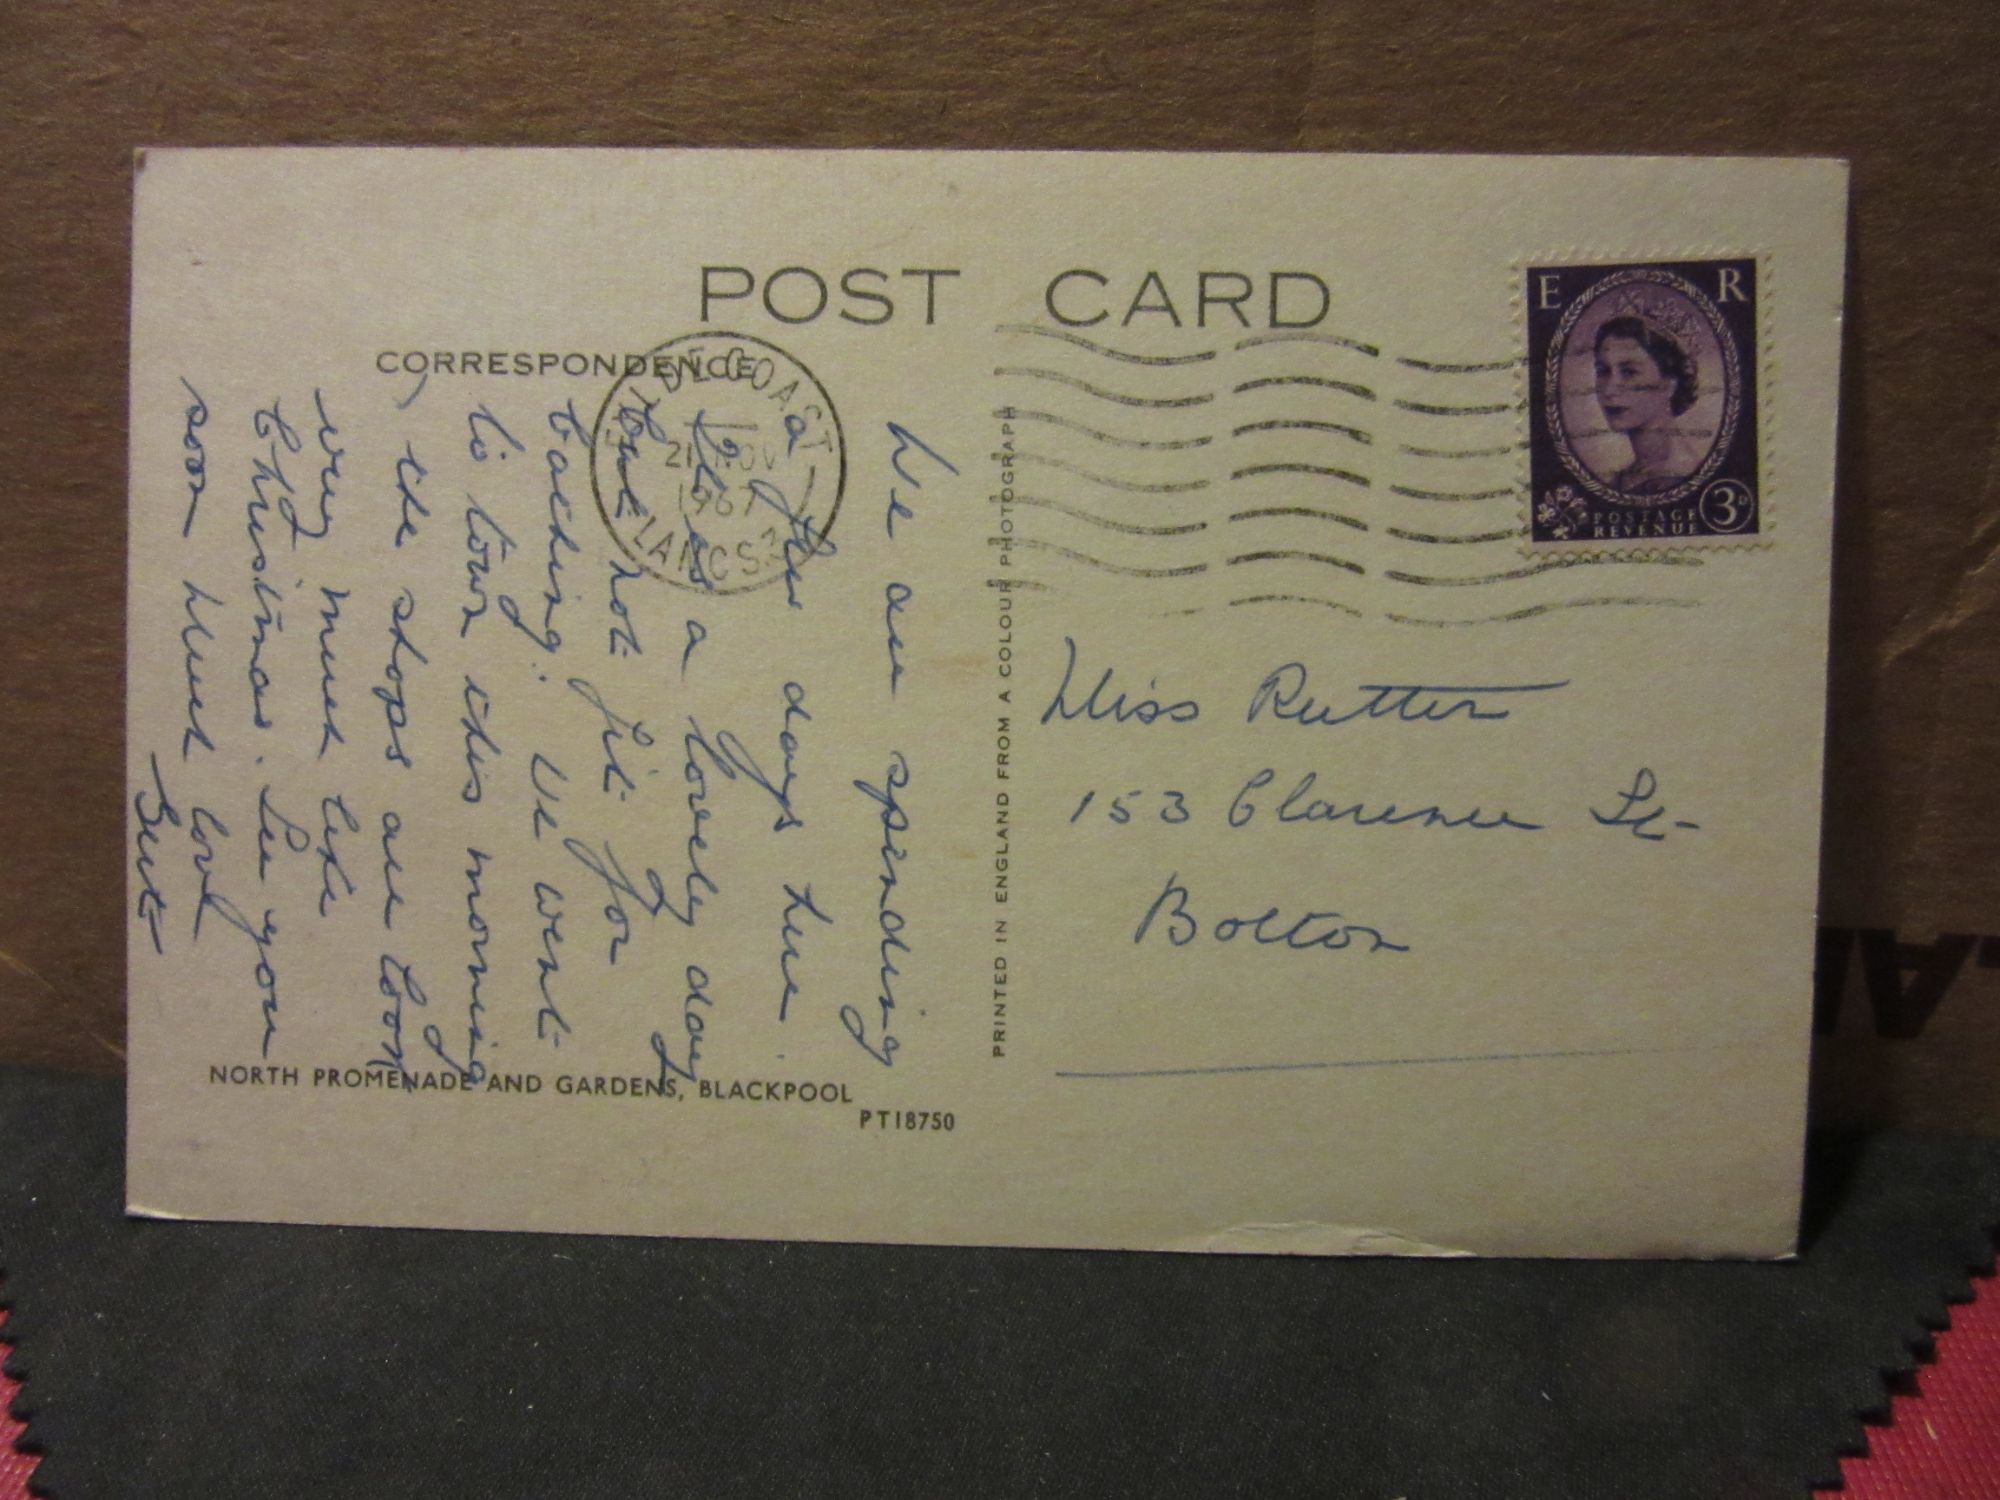 POST CARD
CORRESPONDENCE
We are spending
a few days here.
It is a lovely day
but not fit for
bathing! We went
to town this morning
, the shops are looking
very much like
Christmas. See you
soon Much love
NORTH PROMENADE AND GARDENS, BLACKPOOL
PT18750
PRINTED IN ENGLAND FROM A COLOUR PHOTOGRAPH
COAST
LANCS.
E R
POSTAGE
REVENUE
3D
Miss Rutter
153 Clarence St-
Bolton